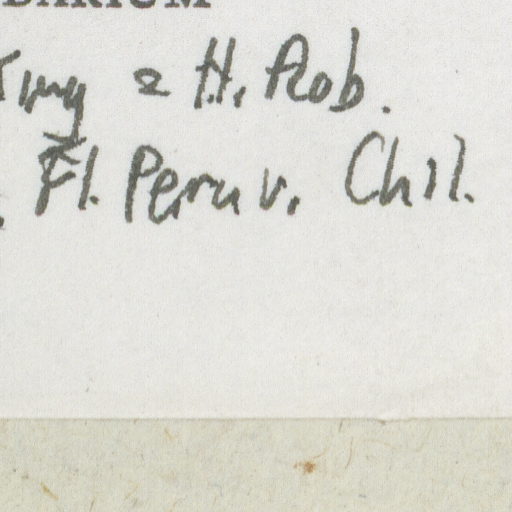 BARIUM
King & H. Rob.
Fl. Peruv. Chil.